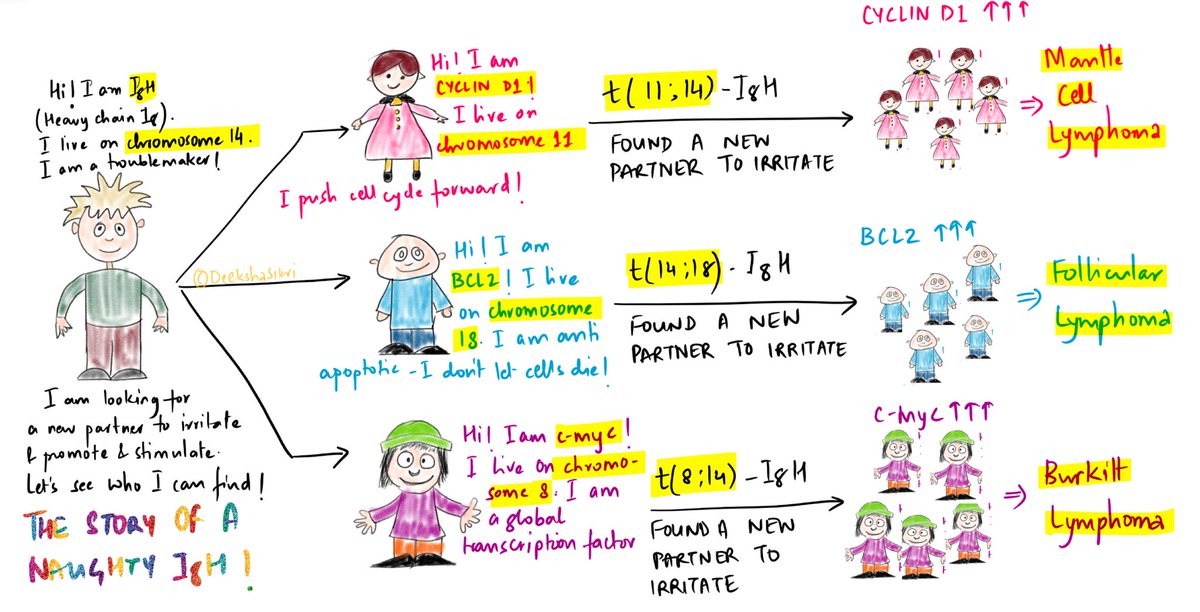 Hi! I am IgH
(Heavy chain Ig).
I live on chromosome 14.
I am a troublemaker!
I am looking for
a new partner to irritate
& promote & stimulate.
Let's see who I can find!
THE STORY OF A
NAUGHTY IgH!
©Deekshasibri
Hi! I am
CYCLIN D1!
I live on
chromosome 11
I push cell cycle forward!
t(11;14)-IgH
FOUND A NEW
PARTNER TO IRRITATE
CYCLIN D1 ↑↑↑
⇒ Mantle
Cell
Lymphoma
Hi! I am
BCL2! I live
on chromosome
18. I am anti
apoptotic - I don't let cells die!
t(14;18) - IgH
FOUND A NEW
PARTNER TO IRRITATE
BCL2 ↑↑↑
⇒ Follicular
Lymphoma
Hi! I am c-myc!
I live on chromo-
some 8. I am
a global
transcription factor
t(8;14) - IgH
FOUND A NEW
PARTNER TO
IRRITATE
C-Myc ↑↑↑
⇒ Burkitt
Lymphoma